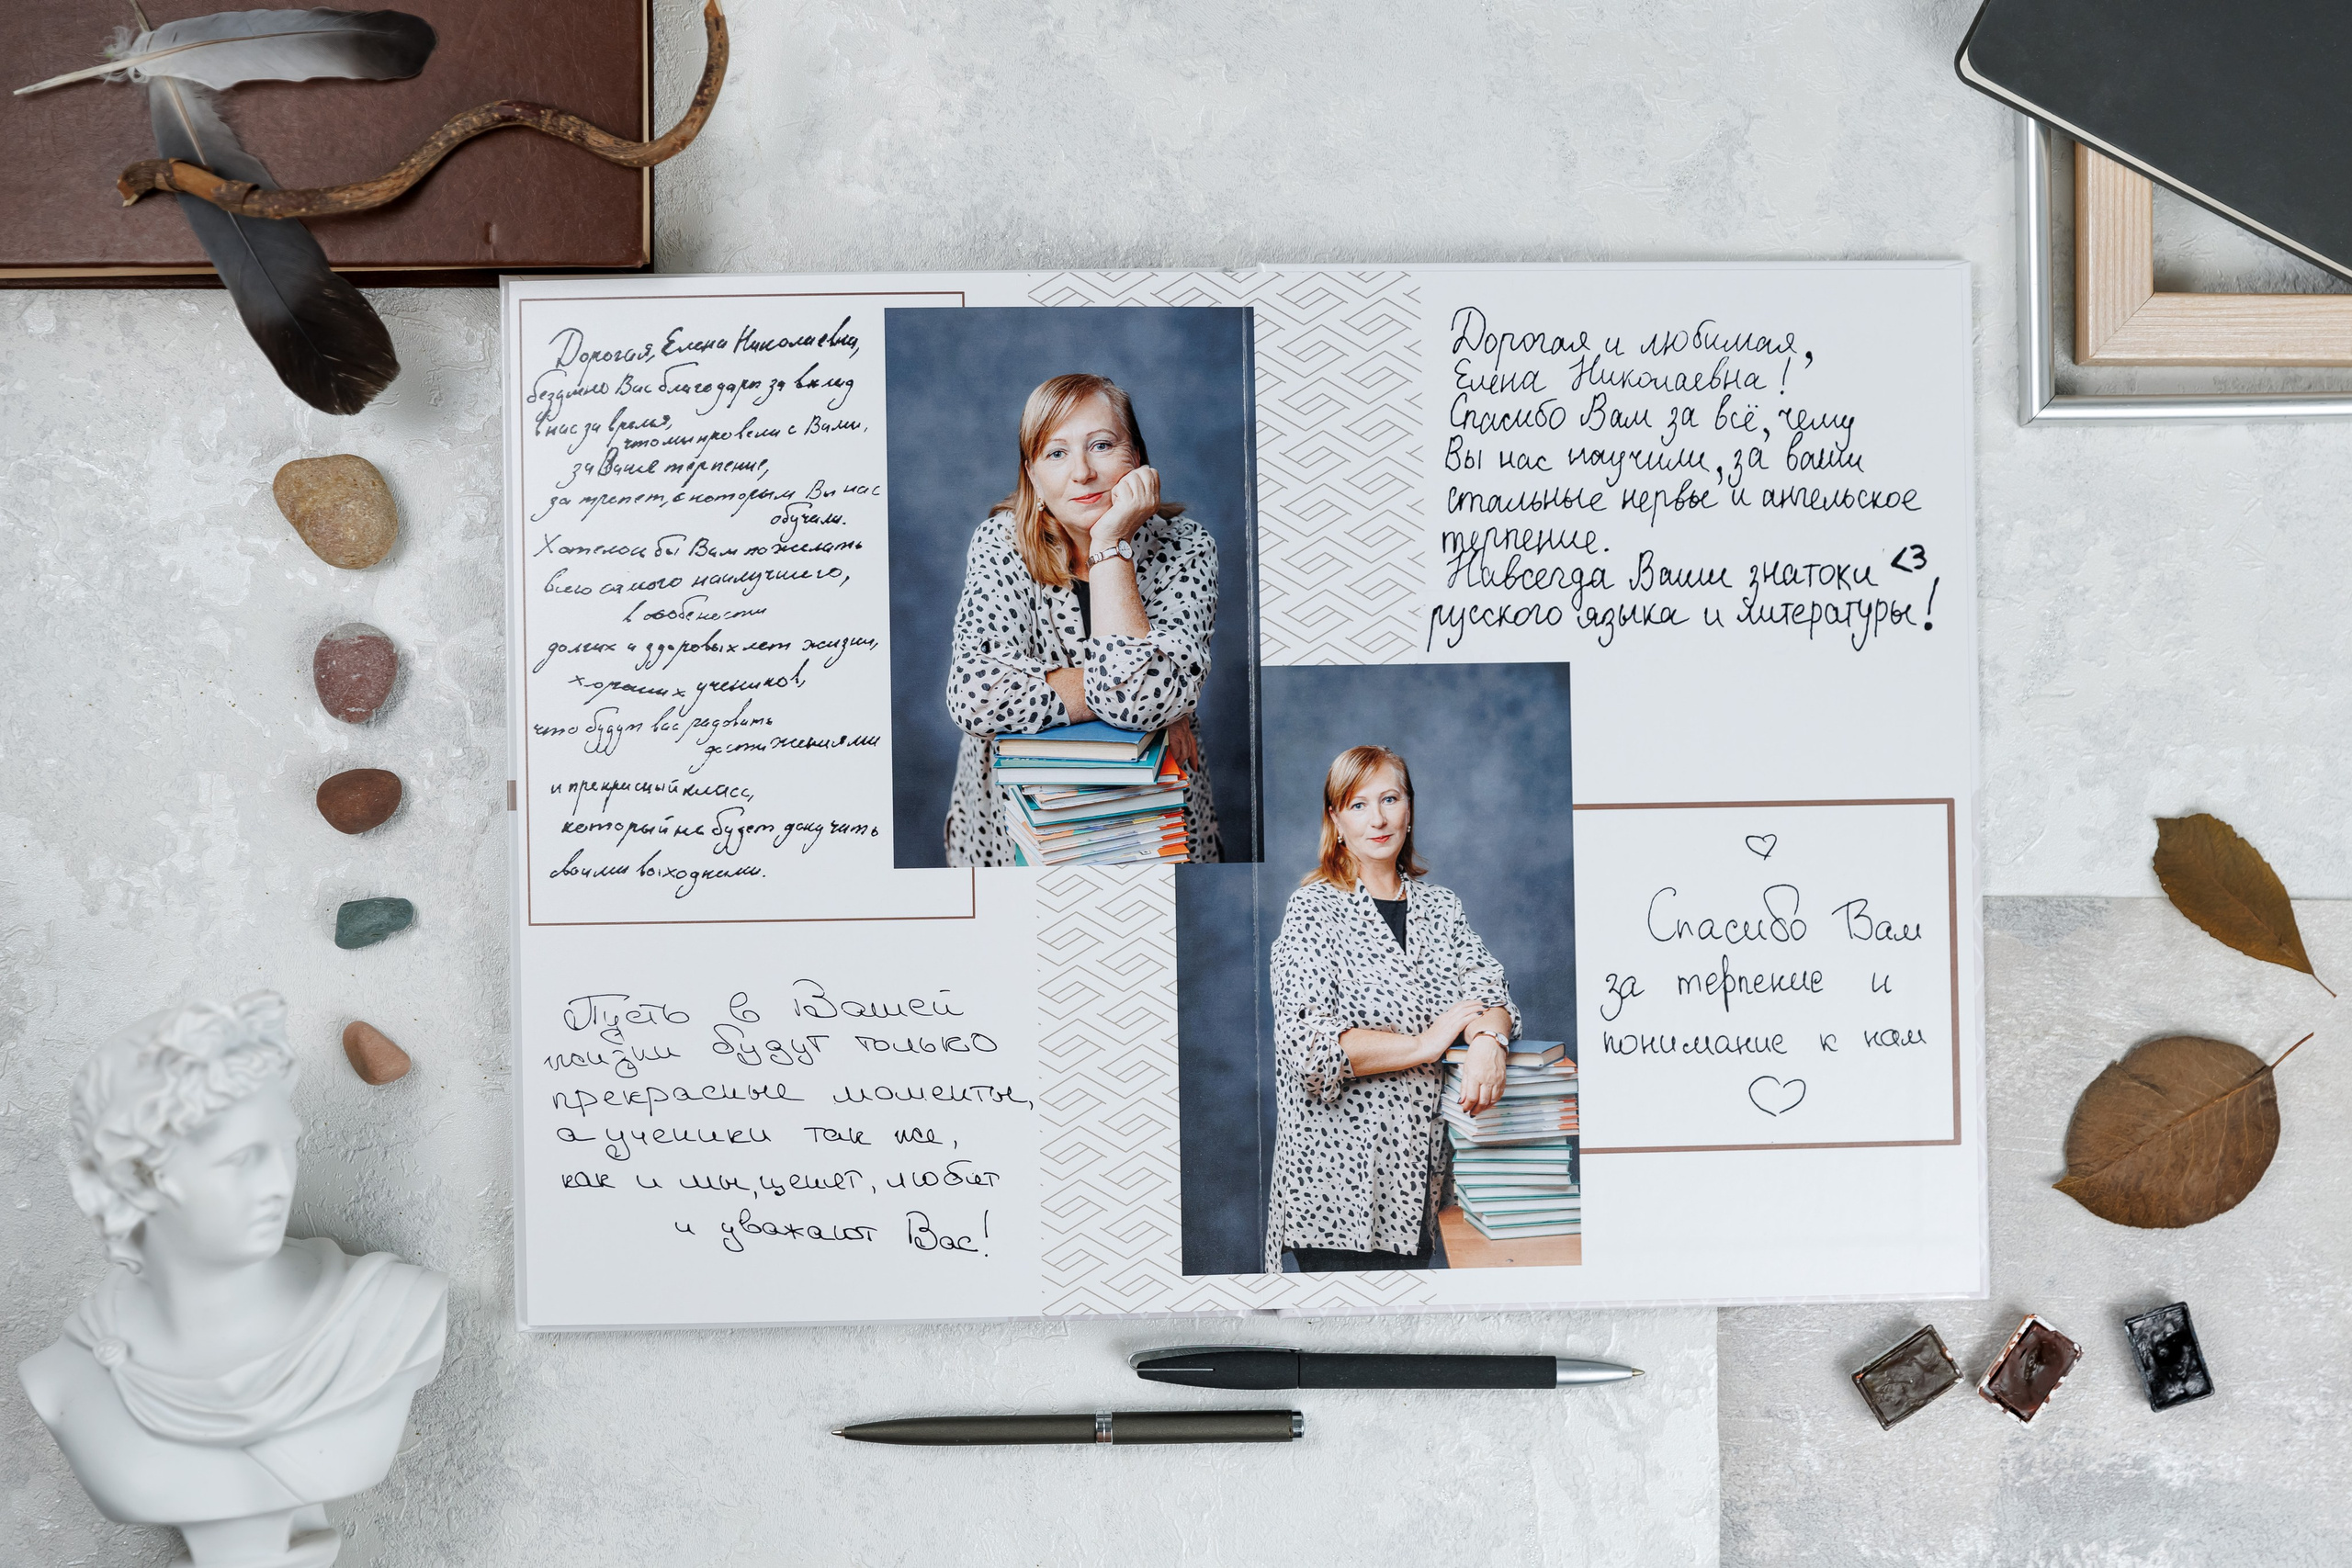 Дорогая, Елена Николаевна,
безумно Вас благодарю за вклад
в нас за время,
что мы провели с Вами,
за Ваше терпение,
за трепет, с которым Вы нас
обучали.
Хотелось бы Вам пожелать
всего самого наилучшего,
в особености
долгих и здоровых лет жизни,
хороших учеников,
что будут вас радовать
достижениями
и прекрасный класс,
который не будет докучать
своими выходками.
Пусть в Вашей
жизни будут только
прекрасные моменты,
а ученики так же,
как и мы, ценят, любят
и уважают Вас!
Дорогая и любимая,
Елена Николаевна!
Спасибо Вам за всё, чему
Вы нас научили, за ваши
стальные нервы и ангельское
терпение.
Навсегда Ваши знатоки <3
русского языка и литературы!
Спасибо Вам
за терпение и
понимание к нам